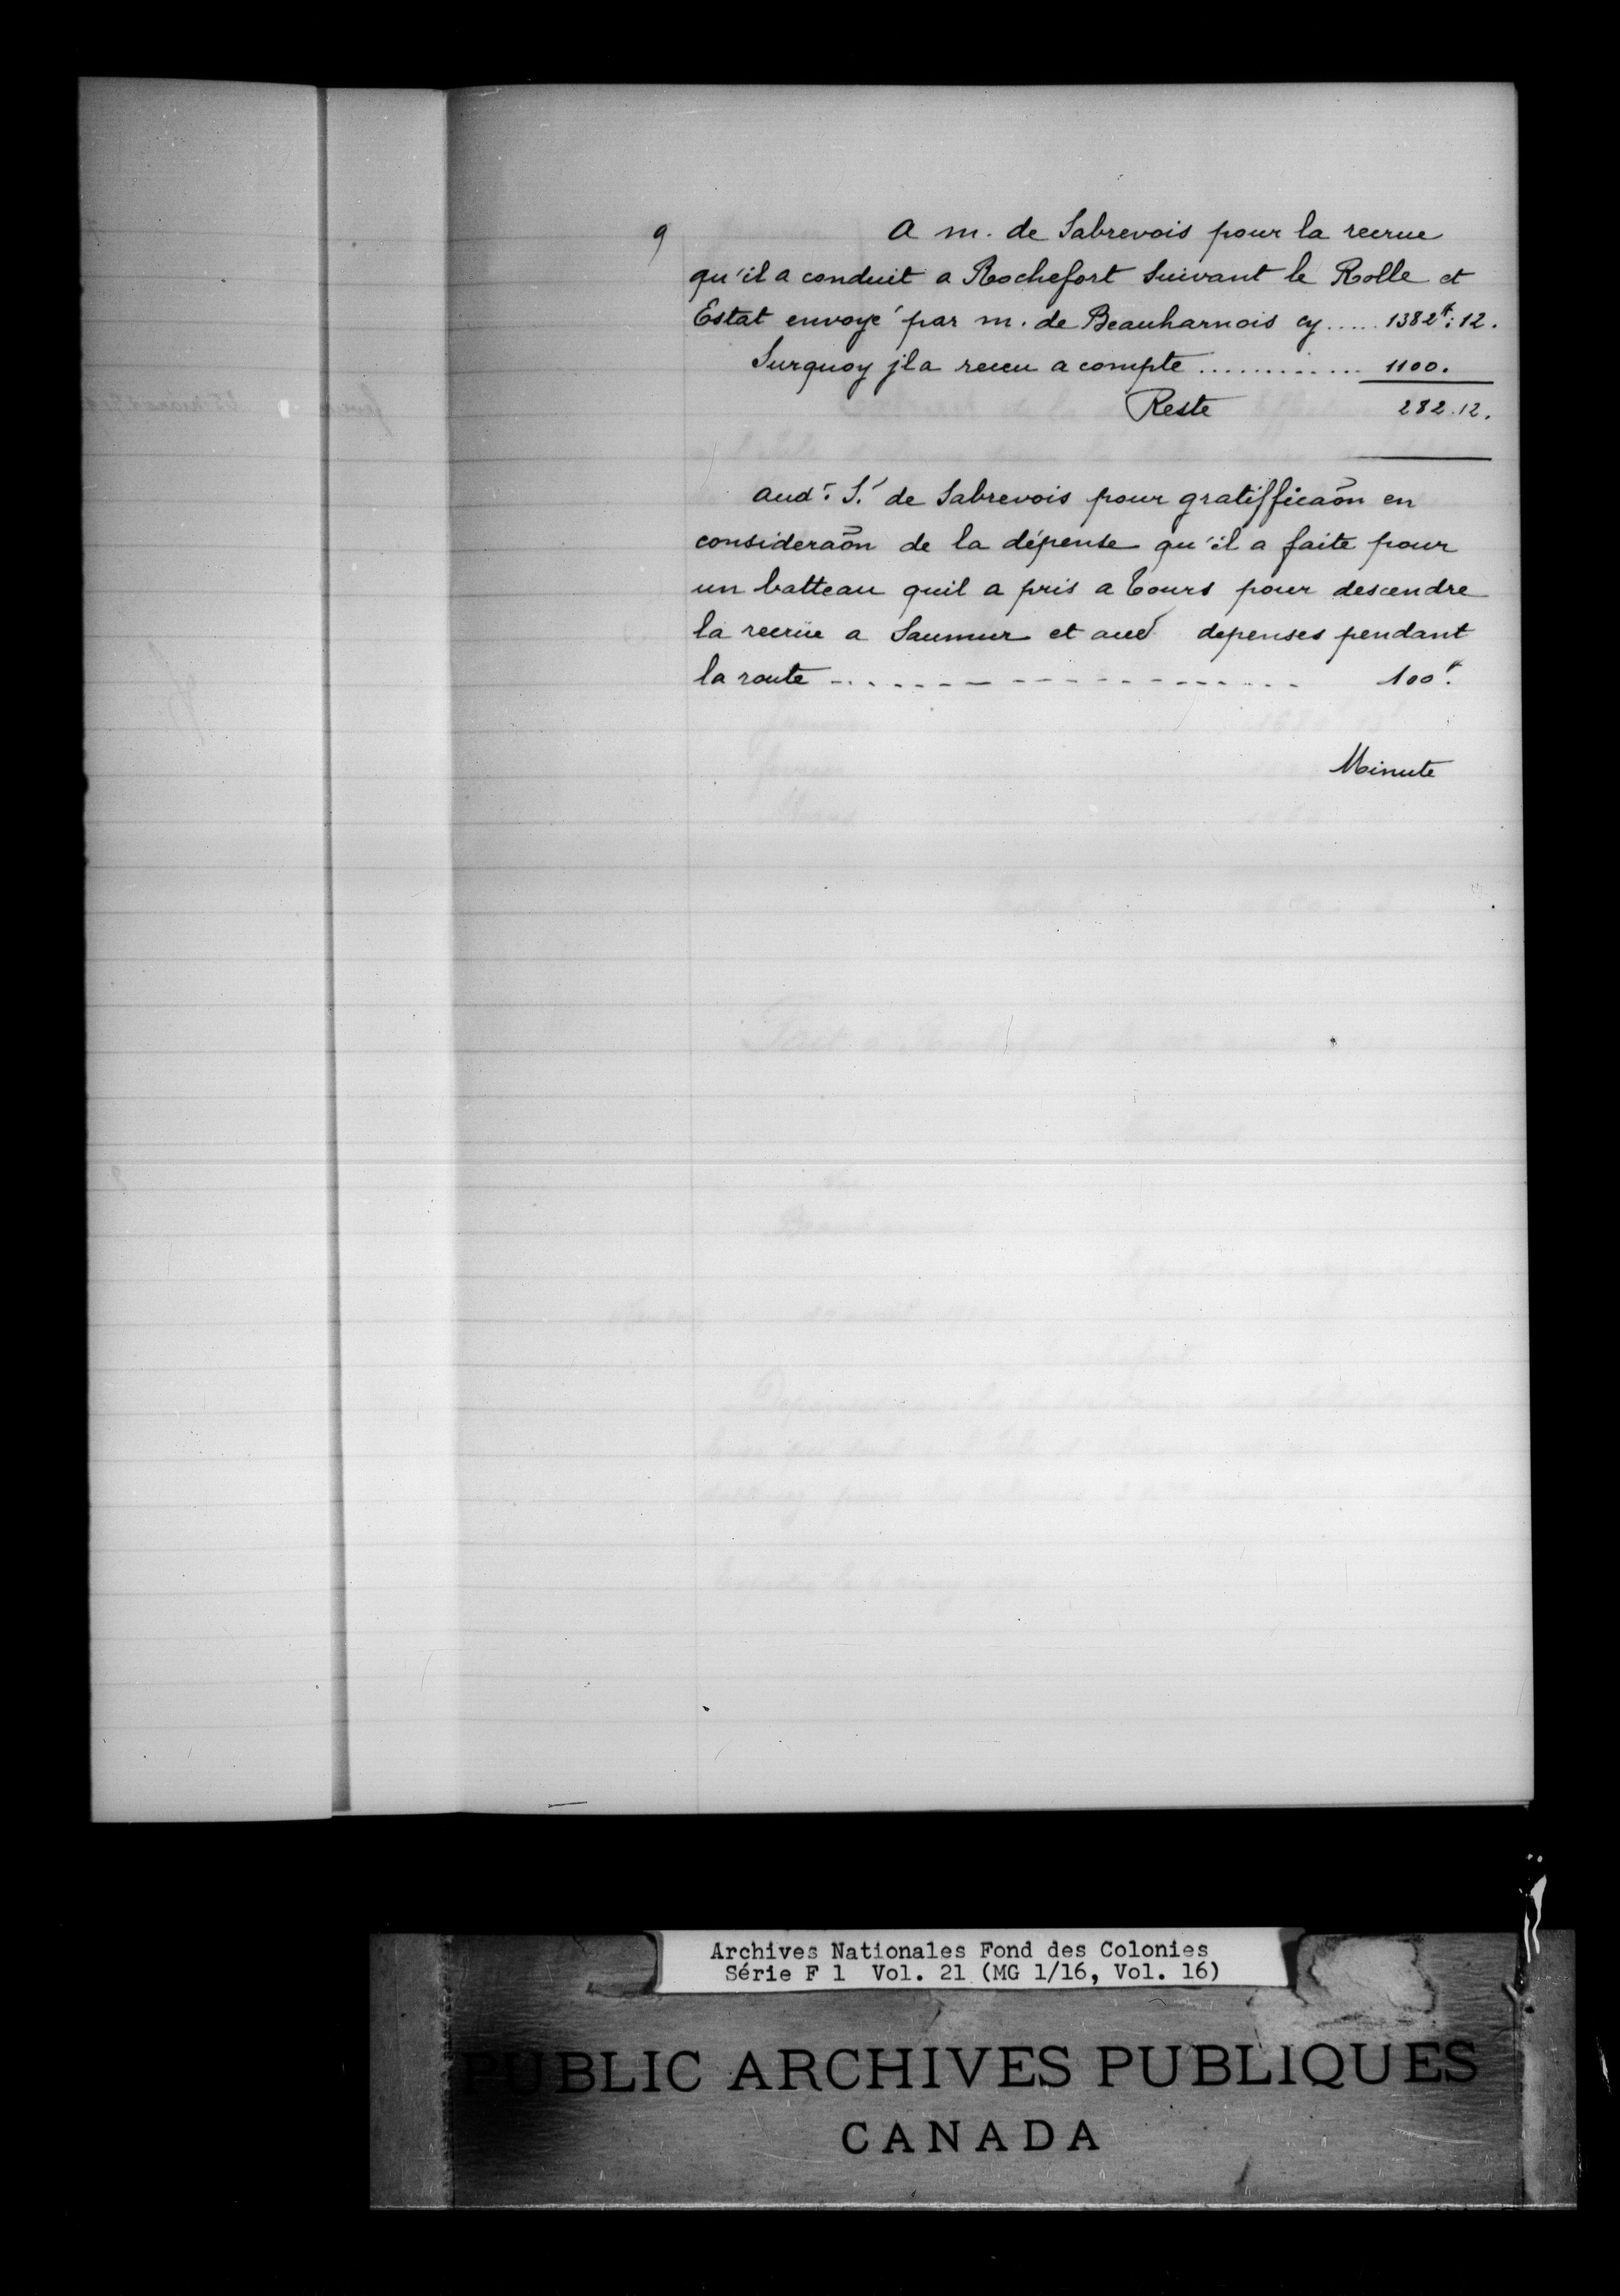 9
A m. de Sabrevois pour la recrue
qu'il a conduit a Rochefort suivant le Rolle et
Estat envoyé par m. de Beauharnois cy ..... 1382#: 12.
Surquoy jl a receu a compte ............ 1100.
Reste 282. 12.
aud.t S.r de Sabrevois pour gratifficaõn en
consideraõn de la dépense qu'il a faite pour
un batteau quil a pris a Tours pour descendre
la recrüe a Saumur et depenses pendant
la route ............ 100#.
Minute
Archives Nationales Fond des Colonies
Série F 1 Vol. 21 (MG 1/16, Vol. 16)
PUBLIC ARCHIVES PUBLIQUES
CANADA